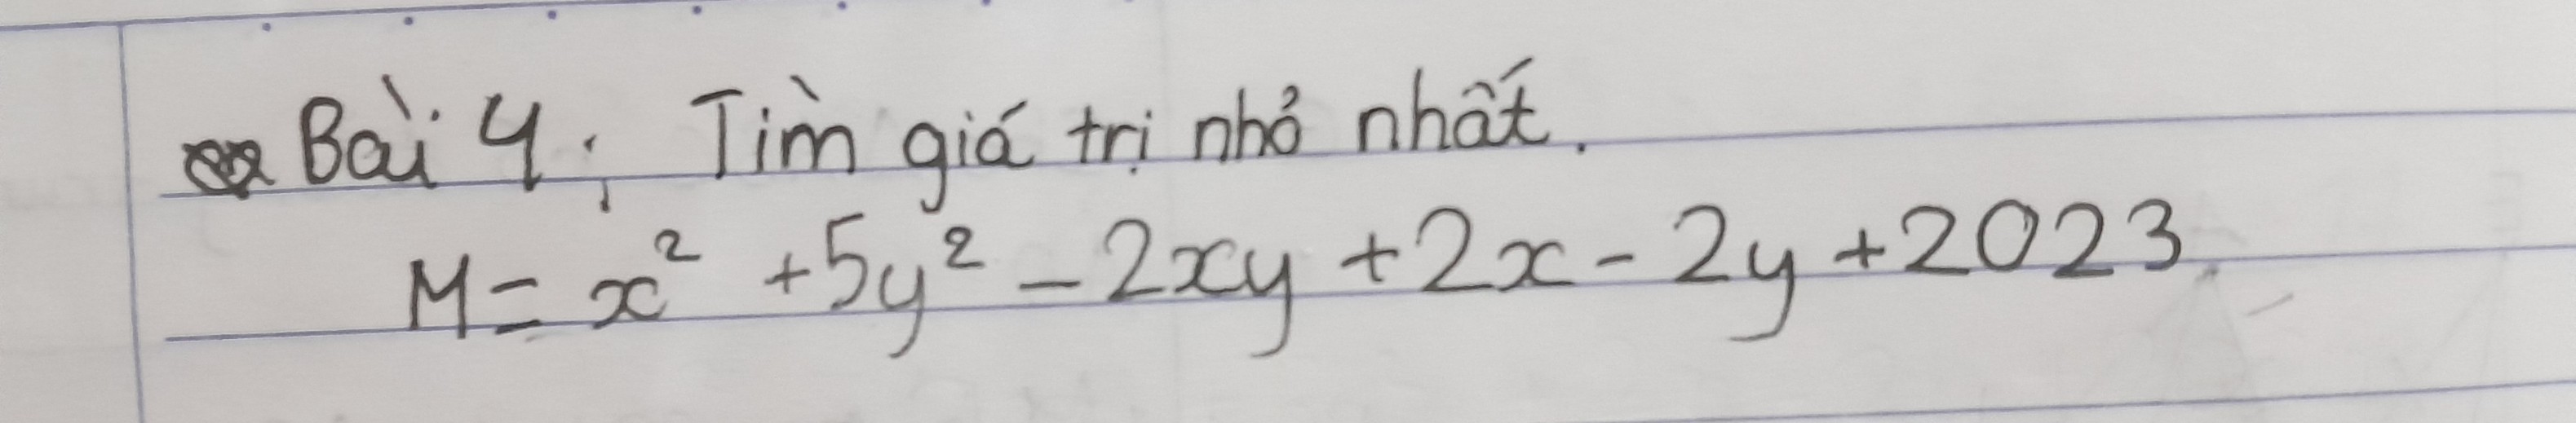 Bài 4. Tìm giá trị nhỏ nhất.
M = x² + 5y² - 2xy + 2x - 2y + 2023